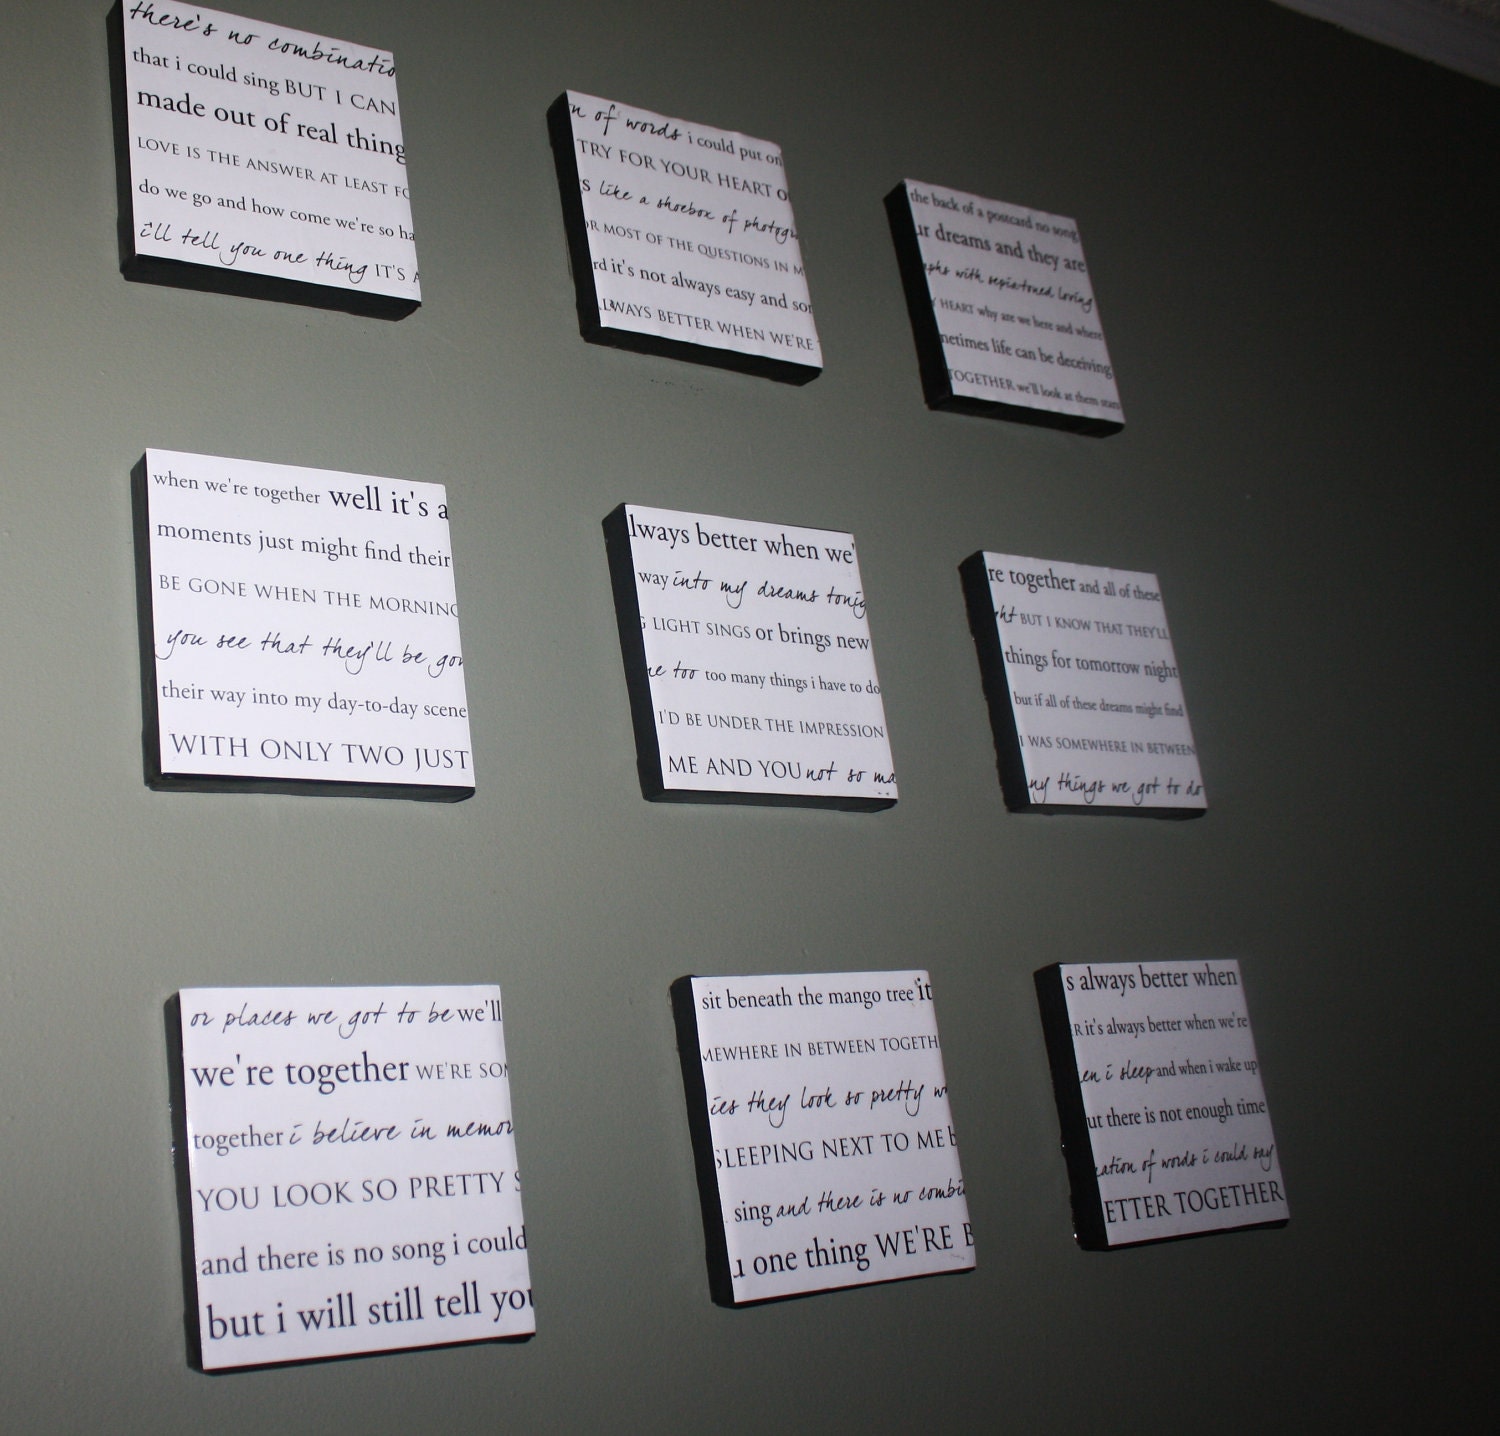 there's no combinatio
that i could sing BUT I CAN
made out of real thing
LOVE IS THE ANSWER AT LEAST FO
do we go and how come we're so ha
i'll tell you one thing IT'S A
n of words i could put on
TRY FOR YOUR HEART O
s like a shoebox of photogr
OR MOST OF THE QUESTIONS IN M
rd it's not always easy and som
LWAYS BETTER WHEN WE'RE
the back of a postcard no song
ur dreams and they are
aphs with sepiatoned loving
Y HEART why are we here and where
metimes life can be deceiving
TOGETHER we'll look at them stars
when we're together well it's a
moments just might find their
BE GONE WHEN THE MORNING
you see that they'll be gon
their way into my day-to-day scene
WITH ONLY TWO JUST
lways better when we'
way into my dreams tonig
G LIGHT SINGS or brings new
ne too too many things i have to do
I'D BE UNDER THE IMPRESSION
ME AND YOU not so ma
re together and all of these
ht BUT I KNOW THAT THEY'LL
things for tomorrow night
but if all of these dreams might find
I WAS SOMEWHERE IN BETWEEN
ny things we got to do
or places we got to be we'll
we're together WE'RE SOM
together i believe in memor
YOU LOOK SO PRETTY S
and there is no song i could
but i will still tell you
sit beneath the mango tree it
MEWHERE IN BETWEEN TOGETH
ies they look so pretty w
SLEEPING NEXT TO ME b
sing and there is no combi
u one thing WE'RE B
s always better when
R it's always better when we're
en i sleep and when i wake up
ut there is not enough time
ation of words i could say
ETTER TOGETHER